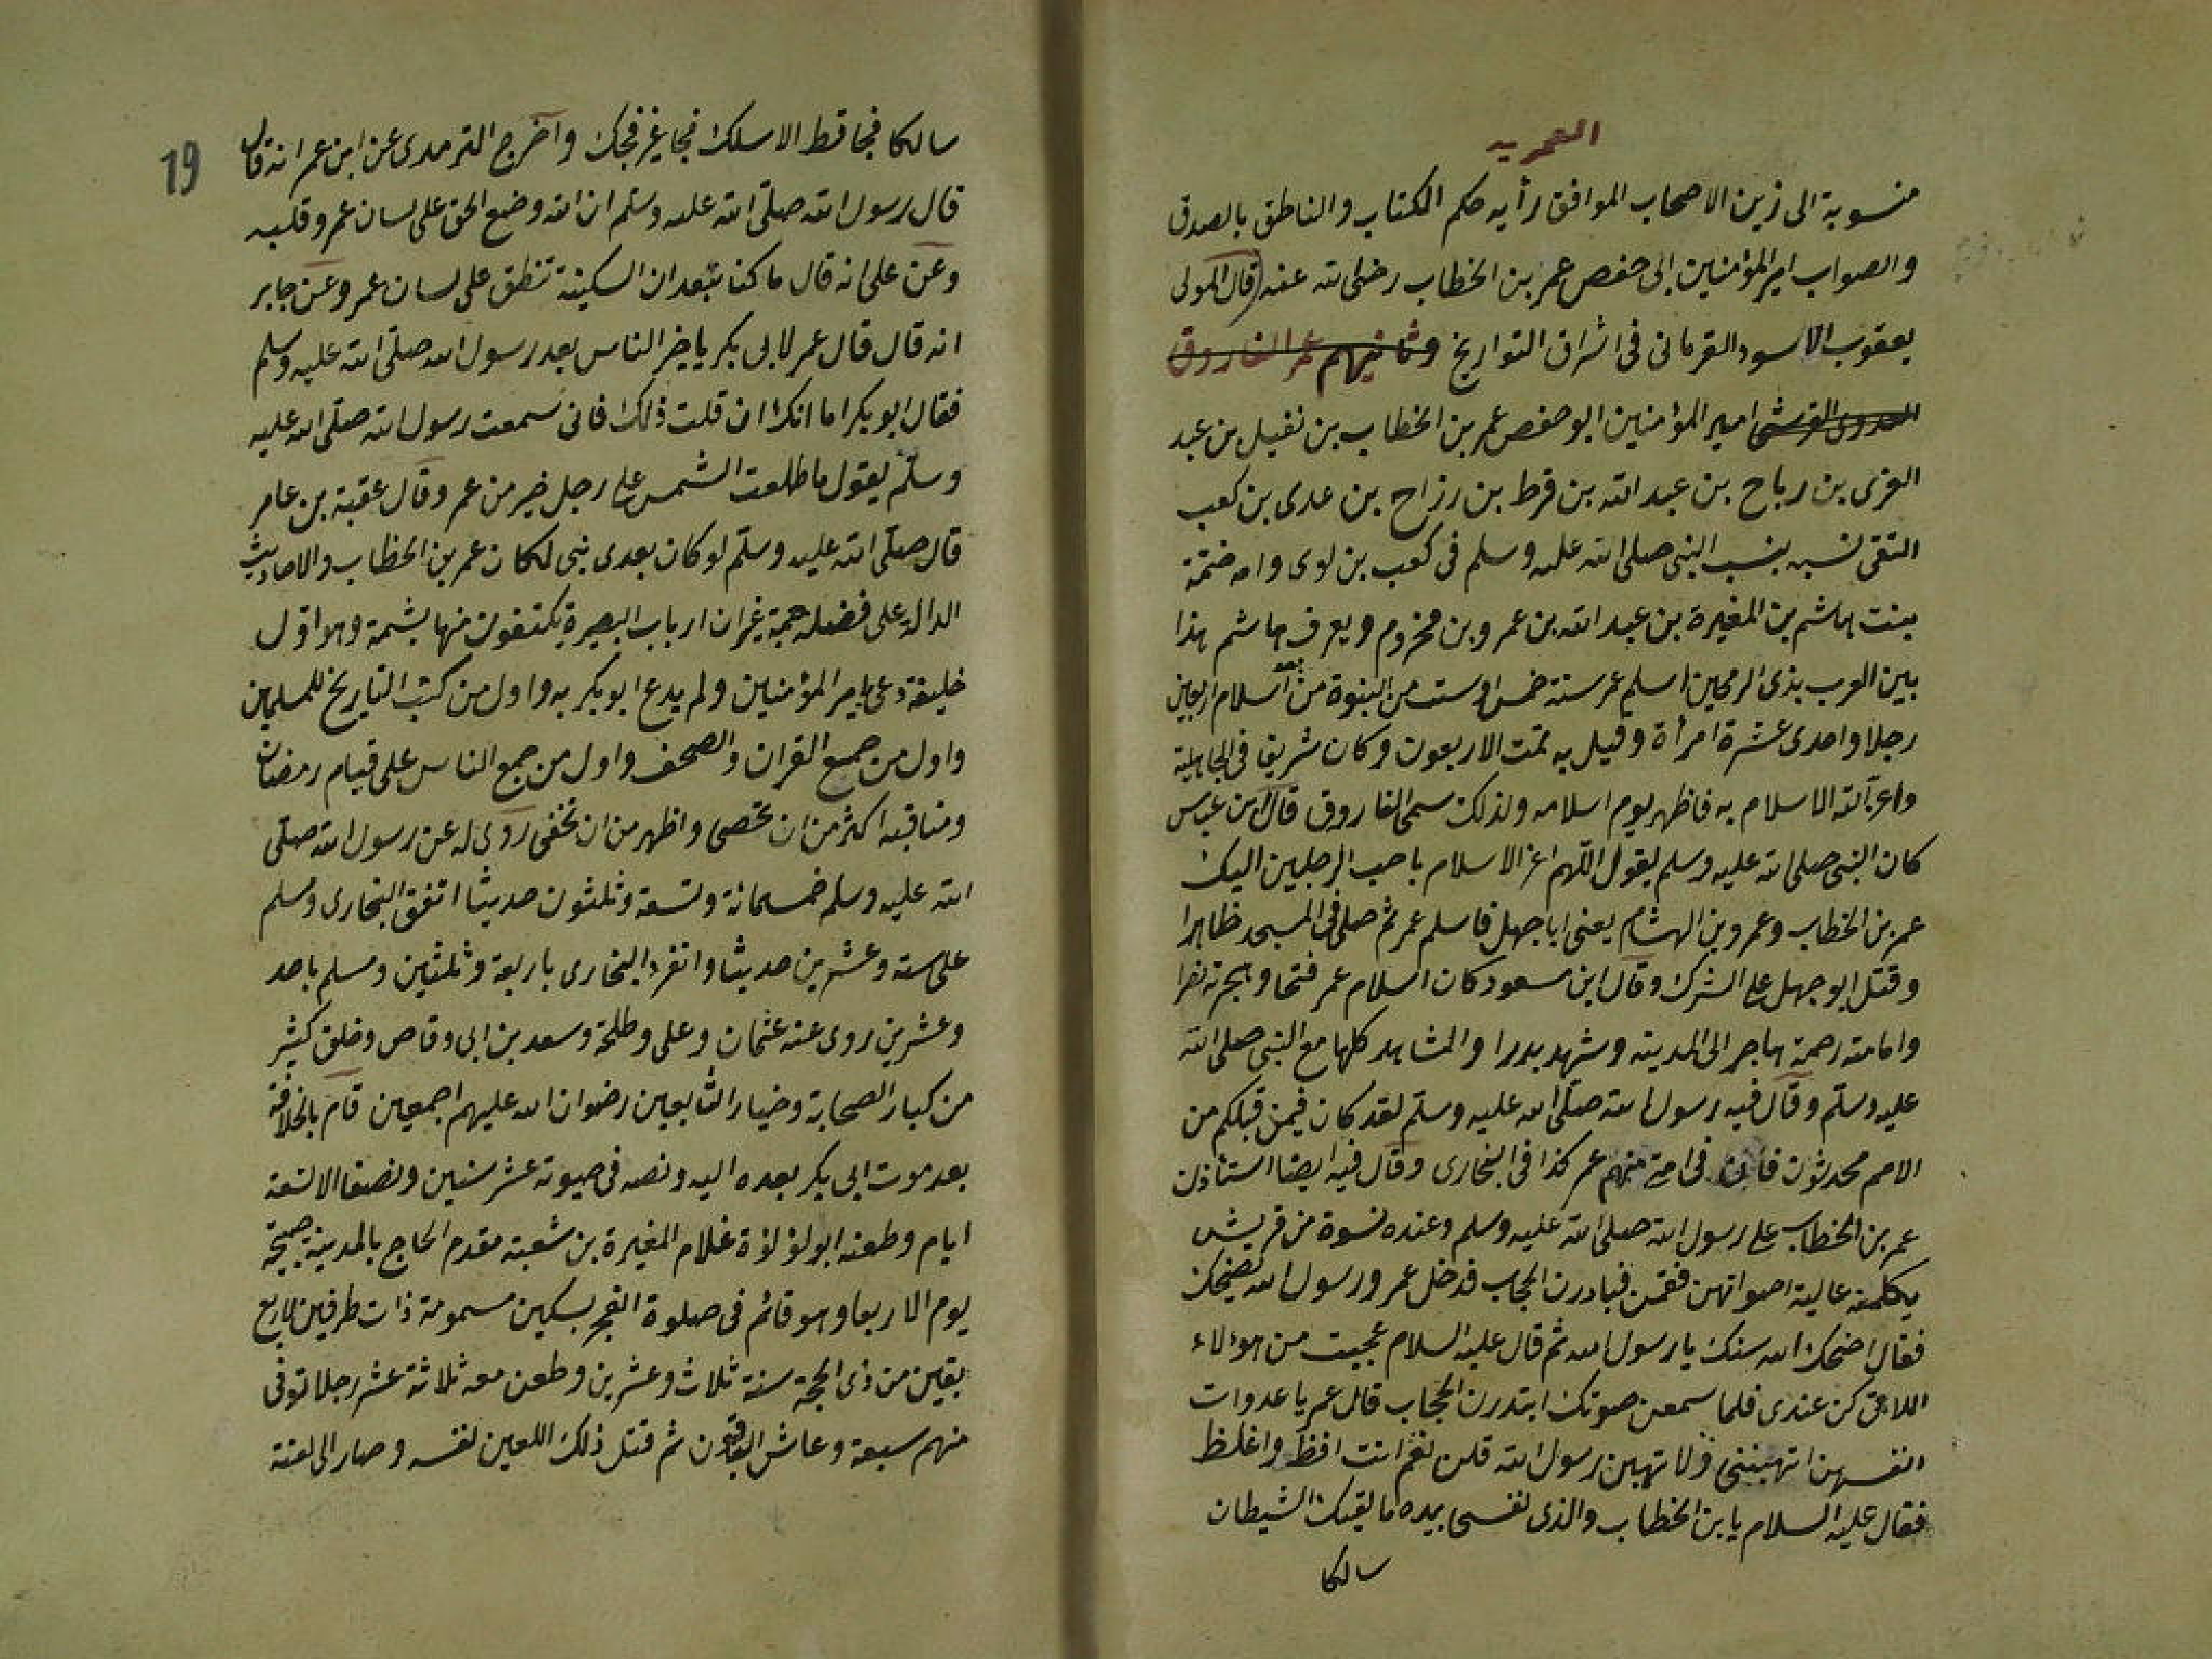 العمرية
منسوبة الى زين الاصحاب الموافق رأيه حكم الكتاب والناطق بالصدق
والصواب امير المؤمنين ابى حفص عمر بن الخطاب رضى الله عنه (قال المولى
يعقوب الاسود القرمانى فى اشراق التواريخ وثانيهم عمر الفاروق
العدوى القرشى امير المؤمنين ابو حفص عمر بن الخطاب بن نفيل بن عبد
العزى بن رباح بن عبد الله بن قرط بن رزاح بن عدى بن كعب
التقى نسبه بنسب النبى صلى الله عليه وسلم فى كعب بن لوى وامه ختمة
بنت هاشم بن المغيرة بن عبد الله بن عمرو بن مخزوم ويعرف هاشم هذا
بين العرب بذى الرمحين اسلم عمر سنة خمس او ست من النبوة من بعد اسلام اربعين
رجلا واحدى عشرة امرأة وقيل به تمت الاربعون وكان شريفا فى الجاهلية
واعز الله الاسلام به فاظهر يوم اسلامه ولذلك سمى الفاروق قال ابن عباس
كان النبى صلى الله عليه وسلم يقول اللهم اعز الاسلام باحب الرجلين اليك
عمر بن الخطاب وعمرو بن الهشام يعنى ابا جهل فاسلم عمر ثم صلى فى المسجد ظاهرا
وقتل ابو جهل على الشرك وقال ابن مسعود كان اسلام عمر فتحا وهجرته نصرا
وامامته رحمة هاجر الى المدينة وشهد بدرا والمشاهد كلها مع النبى صلى الله
عليه وسلم وقال فيه رسول الله صلى الله عليه وسلم لقد كان فيمن قبلكم من
الامم محدثون فان فى امتى منهم عمر كذا فى البخارى وقال فيه ايضا استأذن
عمر بن الخطاب على رسول الله صلى الله عليه وسلم وعنده نسوة من قريش
يكلمنه عالية اصواتهن فقمن فبادرن الحجاب فدخل عمر ورسول الله يضحك
فقال اضحك الله سنك يا رسول الله ثم قال عليه السلام عجبت من هؤلاء
اللاتى كن عندى فلما سمعن صوتك ابتدرن الحجاب قال عمر يا عدوات
انفسهن اتهبننى ولا تهبن رسول الله قلن نعم انت افظ واغلظ
فقال عليه السلام يا بن الخطاب والذى نفسى بيده ما لقيك الشيطان
سالكا
19
سالكا فجا قط الا سلك فجا غير فجك واخرج الترمدى عن ابن عمر انه قال
قال رسول الله صلى الله عليه وسلم ان الله وضع الحق على لسان عمر وقلبه
وعن على انه قال ما كنا نبعد ان السكينة تنطق على لسان عمر وعن جابر
انه قال قال عمر لابى بكر يا خير الناس بعد رسول الله صلى الله عليه وسلم
فقال ابو بكر اما انك ان قلت ذلك فانى سمعت رسول الله صلى الله عليه
وسلم يقول ما طلعت الشمس على رجل خير من عمر وقال عقبة بن عامر
قال صلى الله عليه وسلم لو كان بعدى نبى لكان عمر بن الخطاب والاحاديث
الدالة على فضله جمة غير ان ارباب البصيرة يكتفون منها بشمة وهو اول
خليفة دعى بامير المؤمنين ولم يدع ابو بكر به واول من كتب التاريخ للمسلمين
واول من جمع القران والصحف واول من جمع الناس على قيام رمضان
ومناقبه اكثر من ان تحصى واظهر من ان تخفى روى له عن رسول الله صلى
الله عليه وسلم خمسمائة وتسعة وثلثون حديثا اتفق البخارى ومسلم
على ستة وعشرين حديثا وانفرد البخارى باربعة وثلثين ومسلم باحد
وعشرين روى عنه عثمان وعلى وطلحة وسعد بن ابى وقاص وخلق كثير
من كبار الصحابة وخيار التابعين رضوان الله عليهم اجمعين قام بالخلافة
بعد موت ابى بكر بعهده اليه ونصه فى حيوته عشر سنين ونصفا الا تسعة
ايام وطعنه ابو لؤلؤة غلام المغيرة بن شعبة مقدم الحاج بالمدينة صبيحة
يوم الاربعا وهو قائم فى صلوة الفجر بسكين مسمومة ذات طرفين لاربع
بقين من ذى الحجة سنة ثلاث وعشرين وطعن معه ثلاثة عشر رجلا توفى
منهم سبعة وعاش الباقون ثم قتل ذلك اللعين نفسه وصار الى لعنة